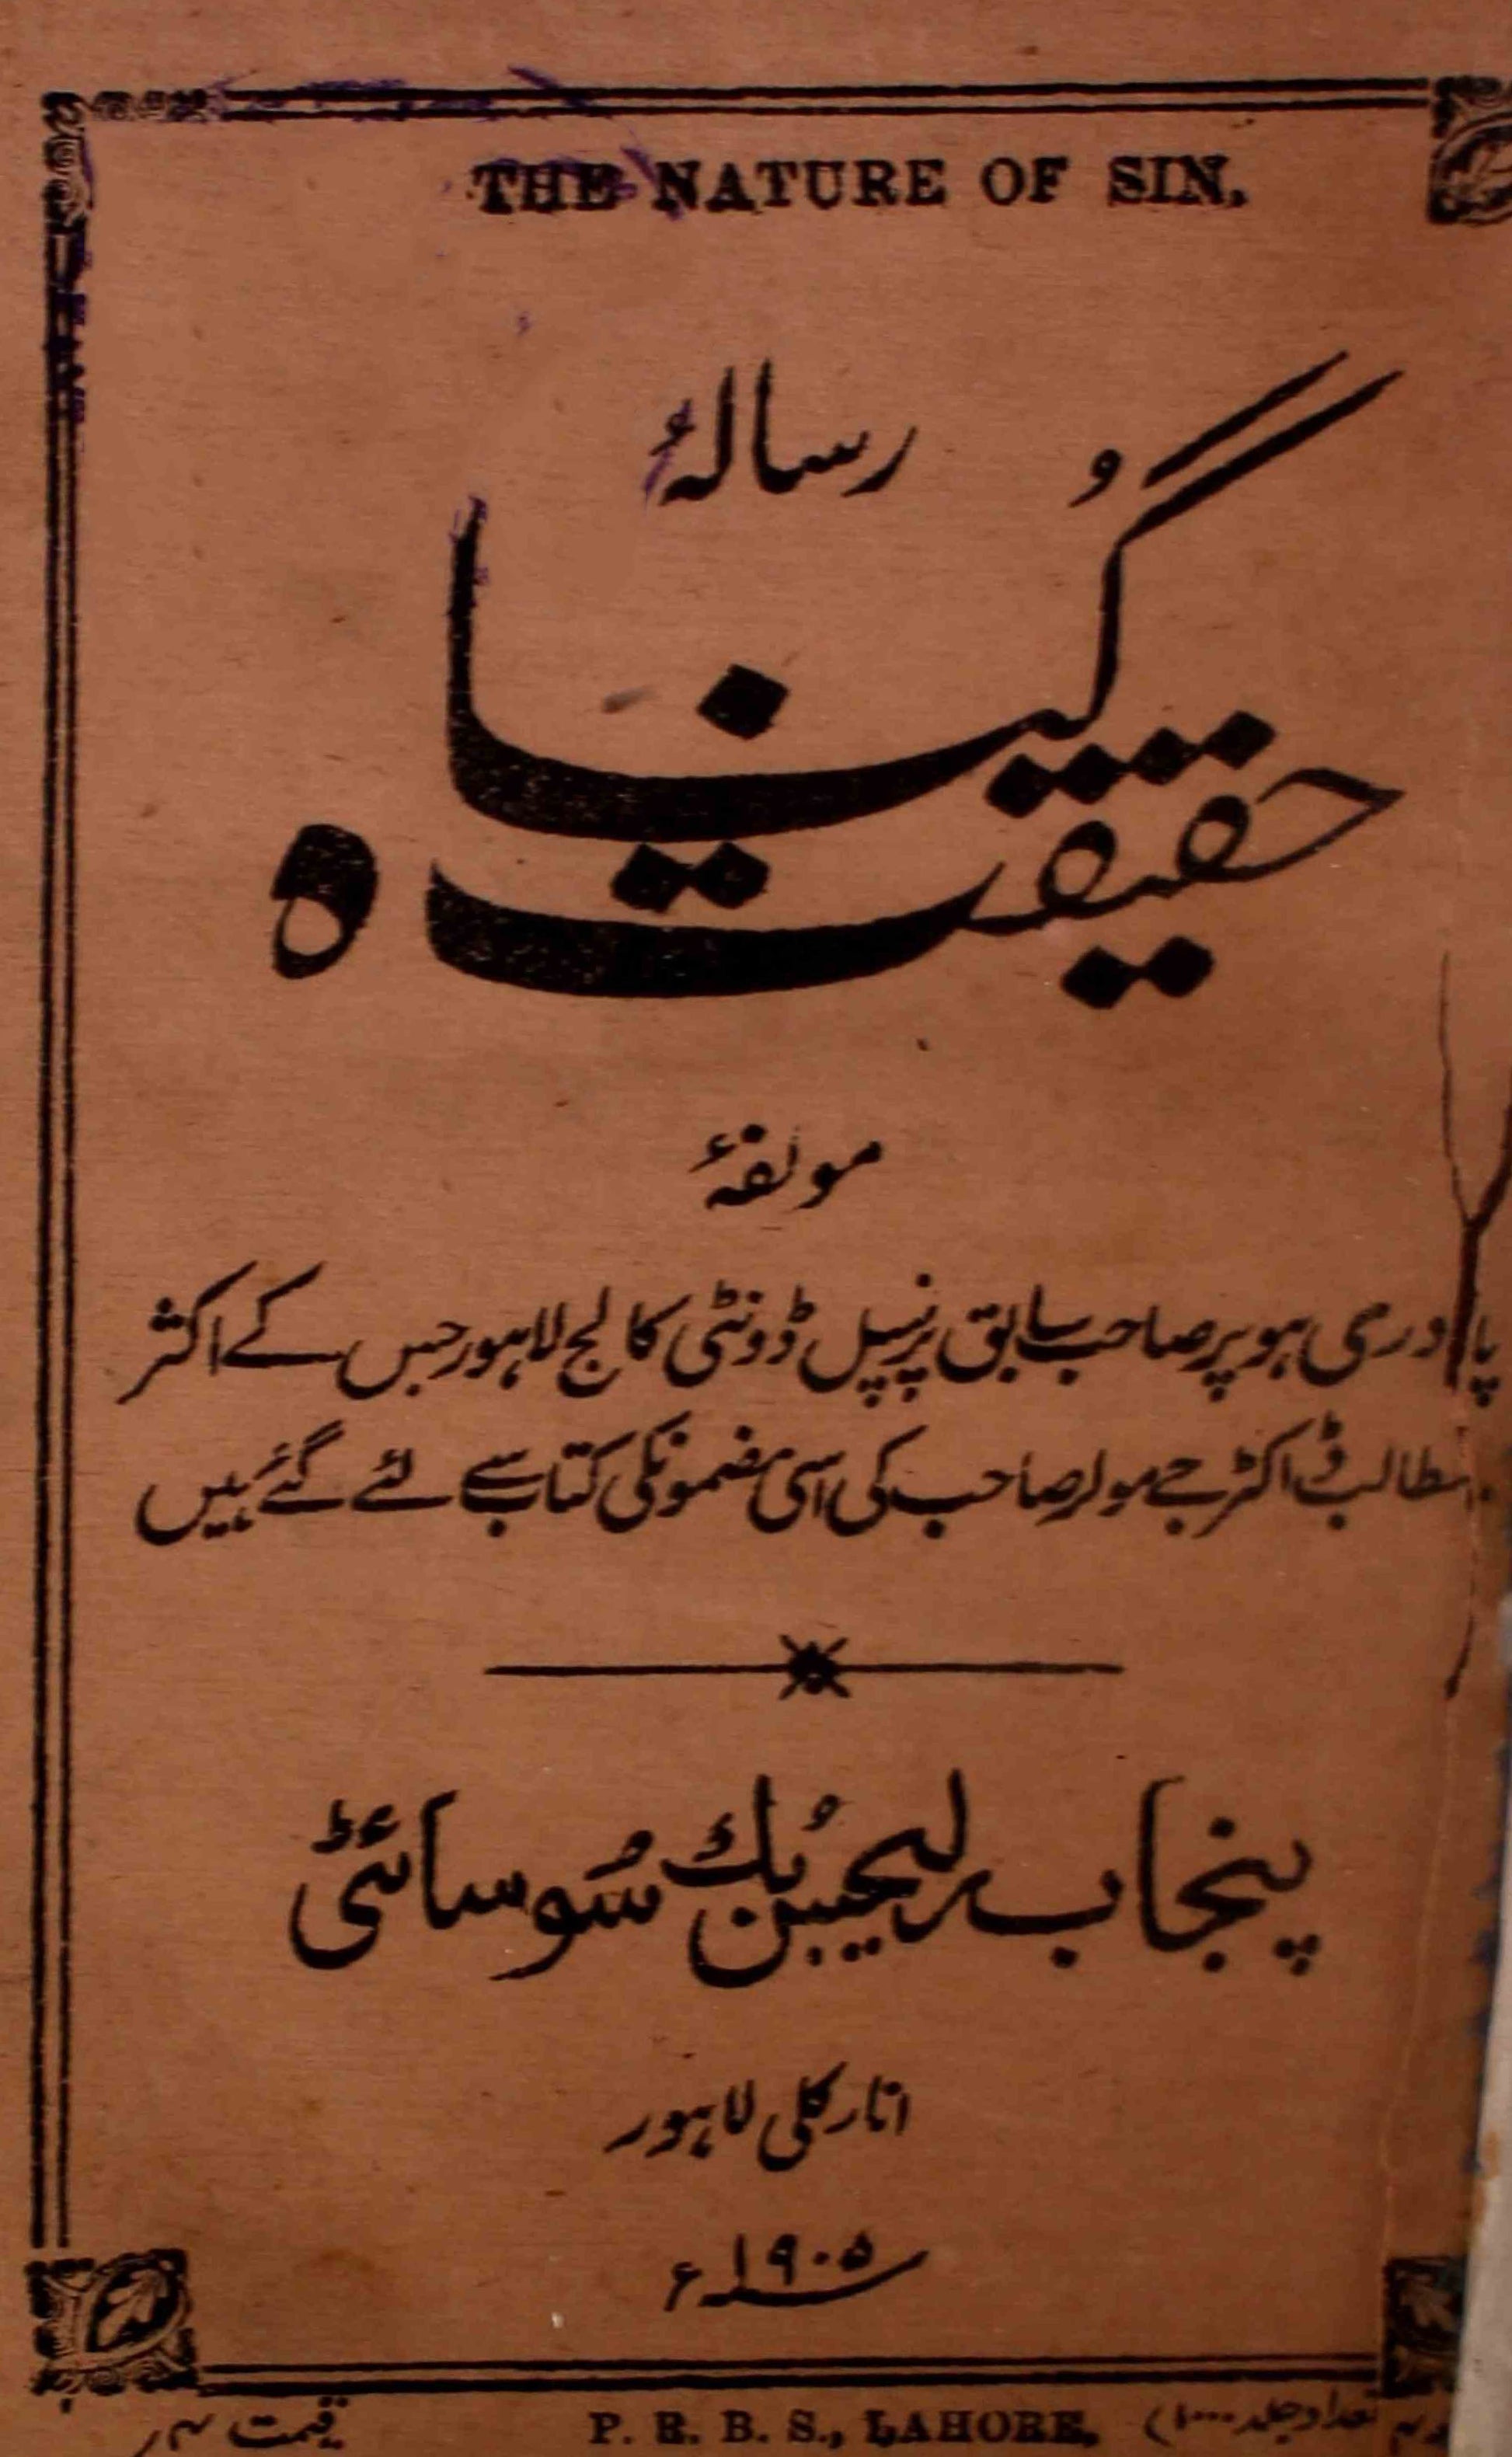 THE NATURE OF SIN.
رسالۂ
حقیقت گُناہ
مولفۂ
پادری ہوپر صاحب سابق پرنسپل ڈونٹی کالج لاہور جس کے اکثر
مطالب ڈاکٹر جے مولر صاحب کی اسی مضمونکی کتاب سے لئے گئے ہیں
پنجاب ریلیجیس بُک سُوسائٹی
انارکلی لاہور
۱۹۰۵ء
قیمت
P. R. B. S., LAHORE,
تعداد جلد ۱۰۰۰)